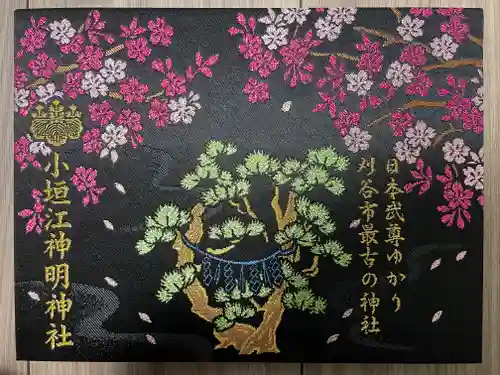 日本武尊ゆかり
刈谷市最古の神社
小垣江神明神社